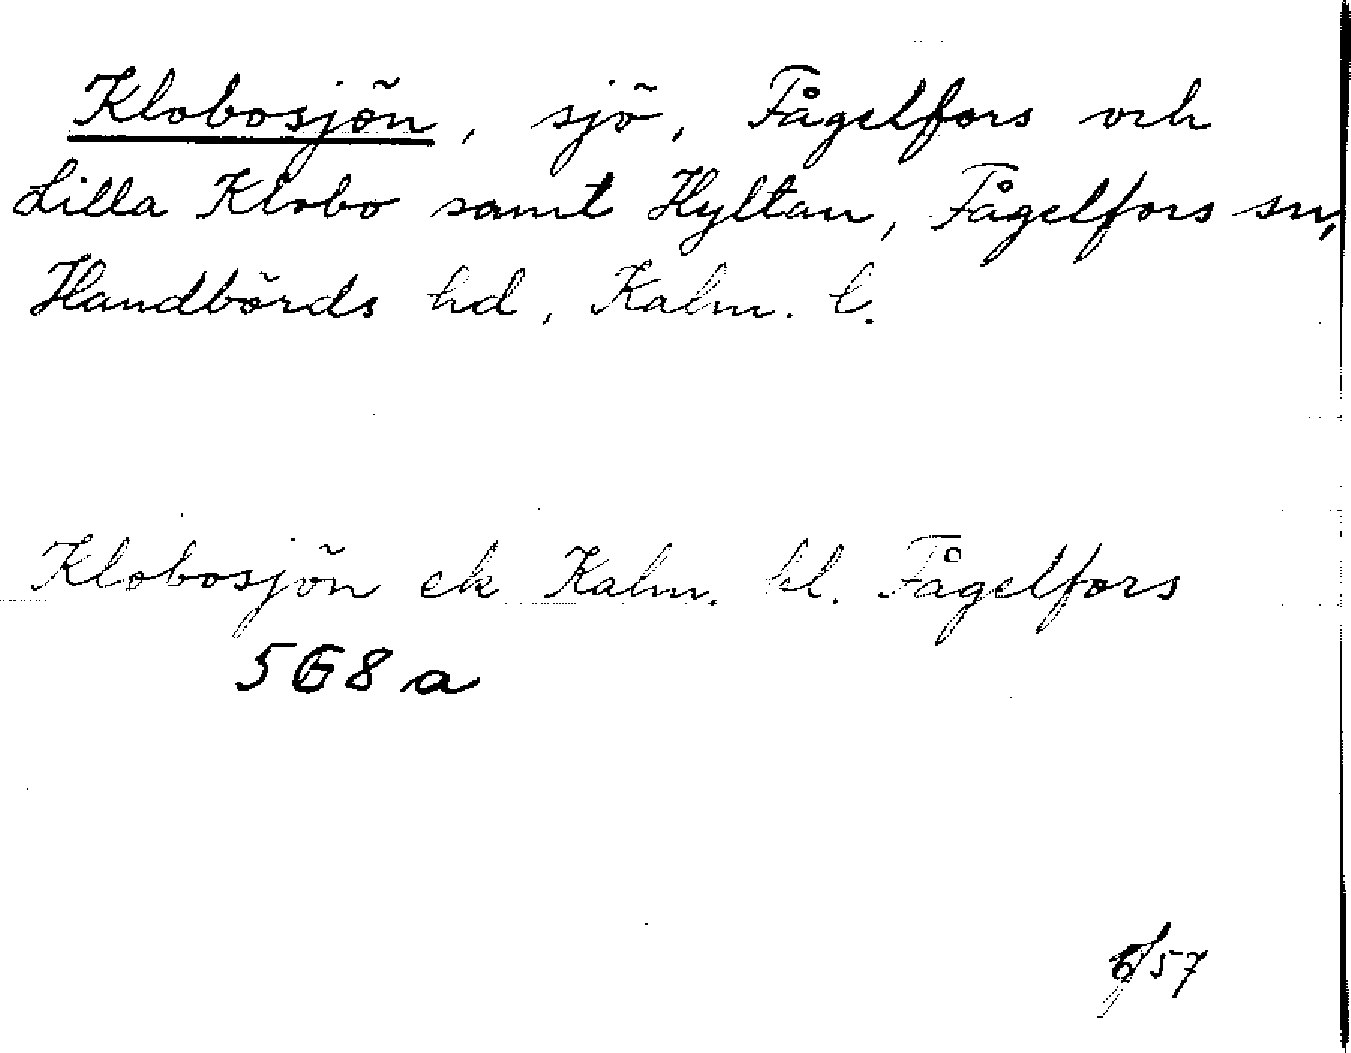 Klobosjön, sjö, Fågelfors och
Lilla Klobo samt Hyltan, Fågelfors sn,
Handbörds hd, Kalm. l.
Klobosjön ek Kalm. bl. Fågelfors
568a
6/57